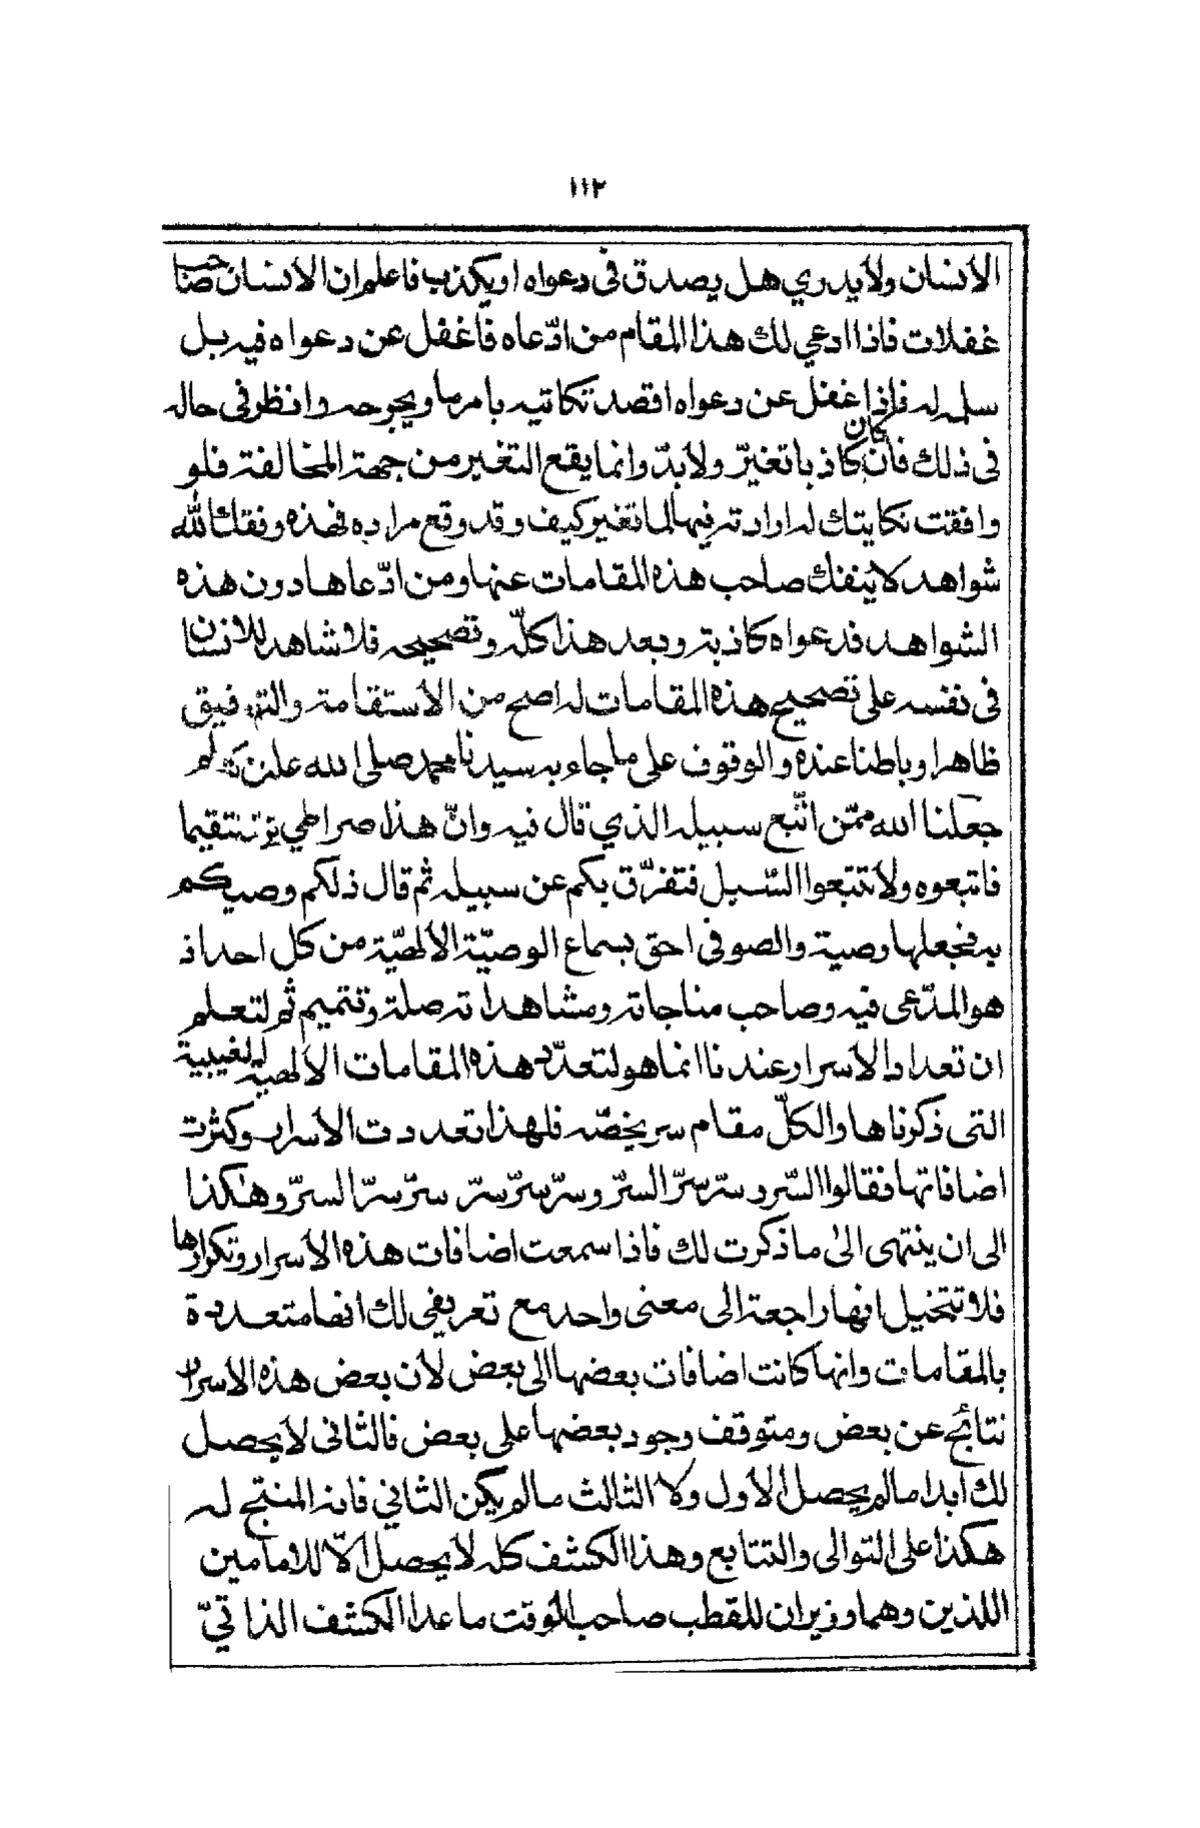 ١١٢
الأنسان ولأيدري هل يصدق فى دعواه او يكذب فاعلم ان الأنسان صاحب
غفلات فاذا ادعي لك هذا المقام من ادّعاه فأغفل عن دعواه فيه بل
سلمه له فإذا غفل عن دعواه اقصد نكاتيه بامرما ويجوحه وانظر فى حاله
فى ذلك فأن كان كاذبا تغيّر ولأبدّ وانما يقع التغير من جهة المخالفة فلو
وافقت نكايتك له ارادته فيها لما تغير كيف وقد وقع مراده فهذه وفقك الله
شواهد لا ينفك صاحب هذه المقامات عنها ومن ادّعاها دون هذه
الشواهد فدعواه كاذبة وبعد هذا كلّه وتصحيحه فلا شاهد للانسان
فى نفسه على تصحيح هذه المقامات له اصح من الأستقامة والتوفيق
ظاهرا وباطنا عنده والوقوف على ما جاء به سيدنا محمد صلى الله عليه
جعلنا الله ممّن اتّبع سبيله الذي قال فيه وانّ هذا صراطي مستقيما
فاتبعوه ولأتتبعوا السّبل فتفرّق بكم عن سبيله ثم قال ذلكم وصيكم
به فجعلها وصية والصوفى احق بسماع الوصيّة الألهيّة من كل احد اذ
هو المدّعى فيه وصاحب مناجاته ومشاهداته صلة وتتميم ثم لتعلم
ان تعداد الأسرار عندنا انما هو لتعدّد هذه المقامات الألهية الغيبية
التى ذكرناها والكلّ مقام سر يخصّه فلهذا تعددت الأسرار وكثرت
اضافاتها فقالوا السّر وسرّ سرّ السرّ وسرّ سرّ سر سرّ سرّ السرّ وهكذا
الى ان ينتهى الى ما ذكرت لك فاذا سمعت اضافات هذه الأسرار وتكرارها
فلا تتخيل انها راجعة الى معنى واحد مع تعريفي لك انها متعددة
بالمقامات وانها كانت اضافات بعضها الى بعض لأن بعض هذه الاسرار
نتائج عن بعض ومتوقف وجود بعضها على بعض فالثانى لأيحصل
لك أبدا مالم يحصل الأول ولا الثالث مالم يكن الثاني فانه المنتج له
هكذا على التوالى والتتابع وهذا الكشف كله لأيحصل الاّ للامامين
اللذين وهما وزيران للقطب صاحب الوقت ما عدا الكشف الذاتيّ